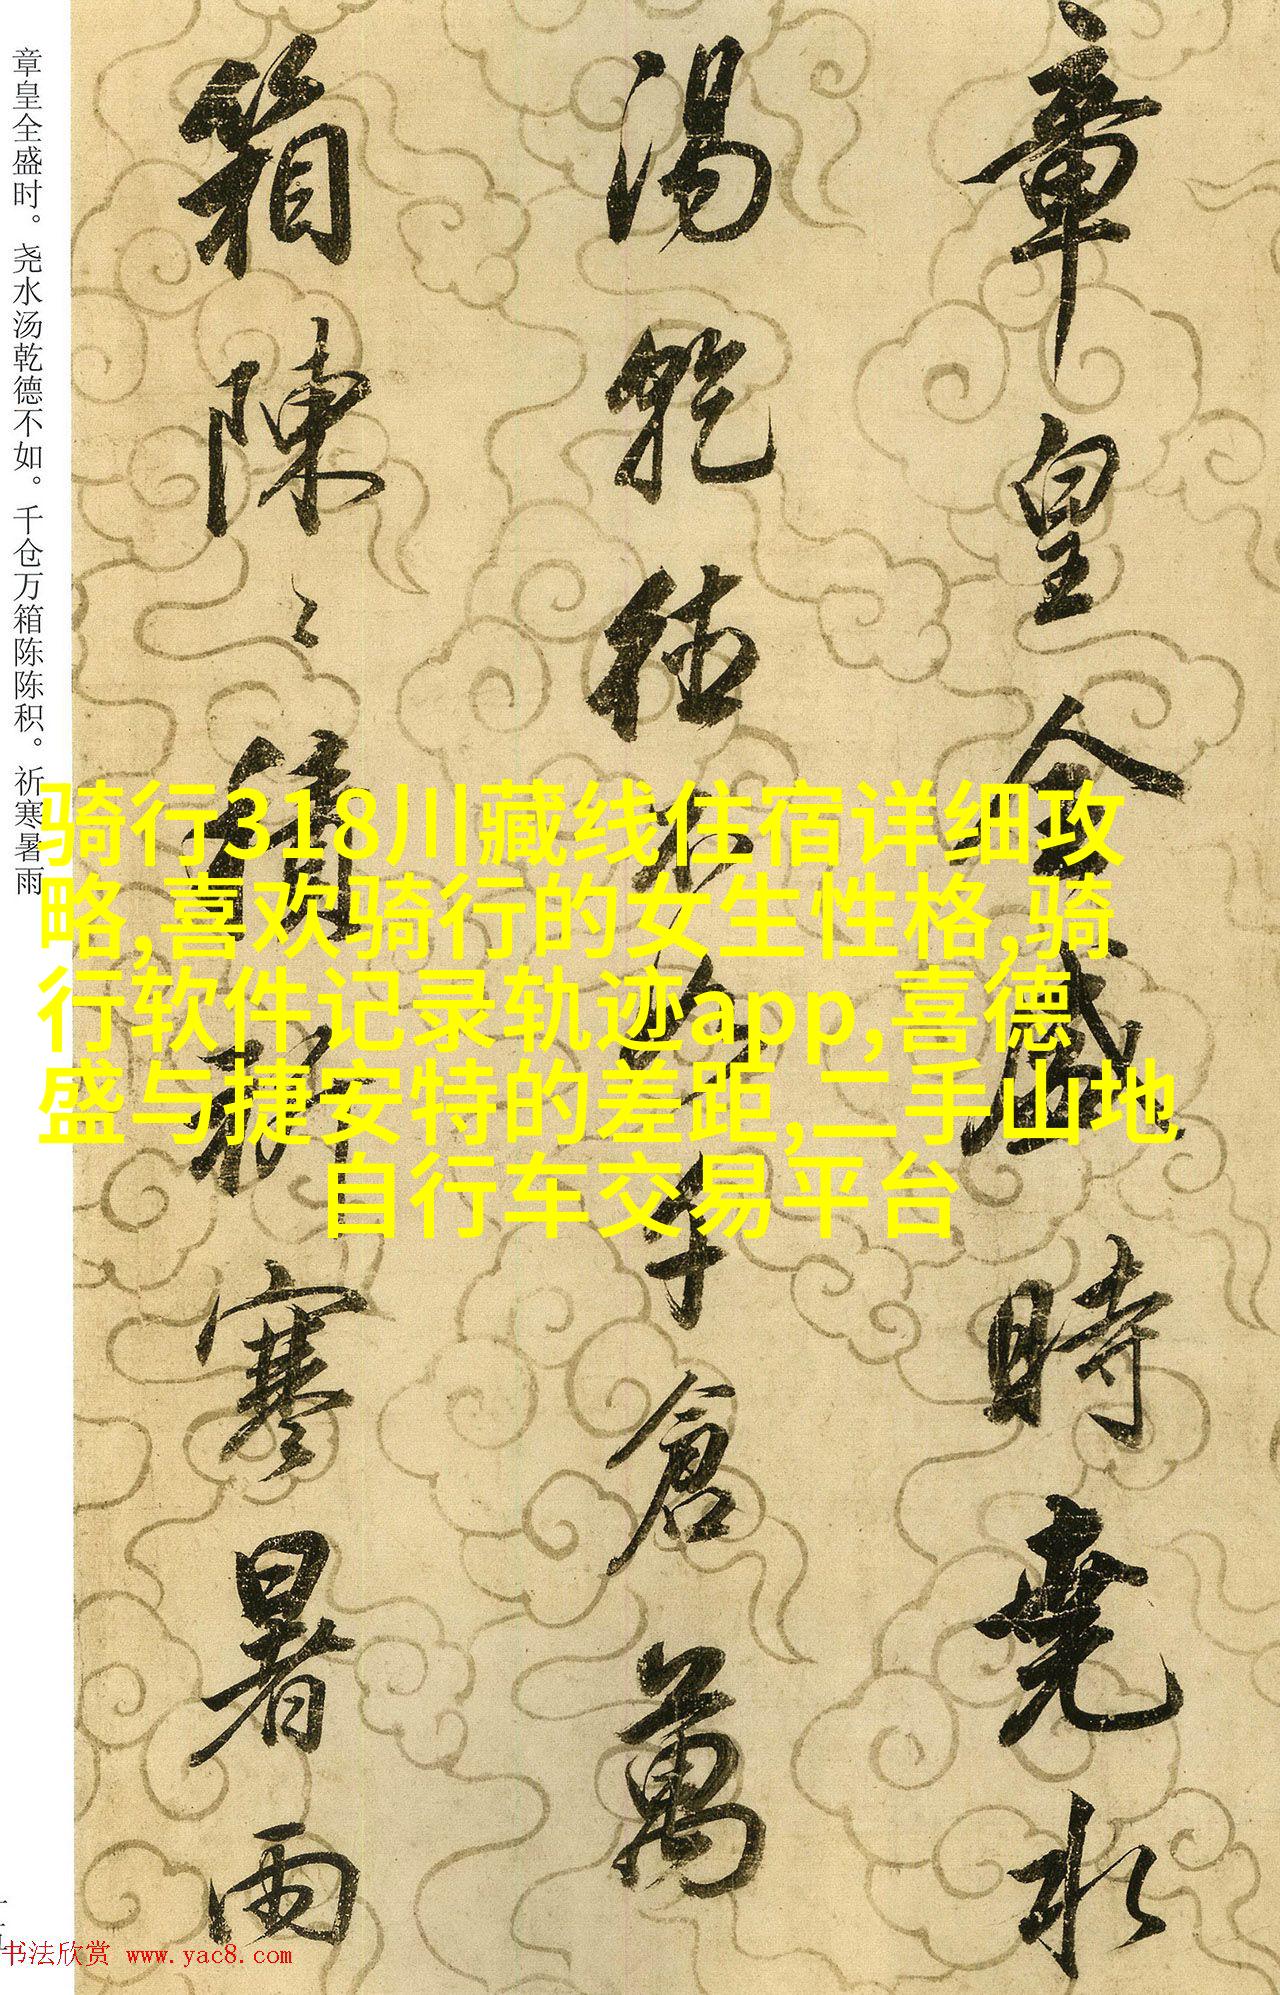 章皇全盛時堯水
湯乾德不如千倉萬
箱陳〻積祈寒暑雨
章皇全盛时。尧水汤乾德不如。千仓万箱陈陈积。祈寒暑雨
骑行318川藏线住宿详细攻
略,喜欢骑行的女生性格,骑
行软件记录轨迹app,喜德
盛与捷安特的差距,二手山地
自行车交易平台
书法欣赏 www.yac8.com